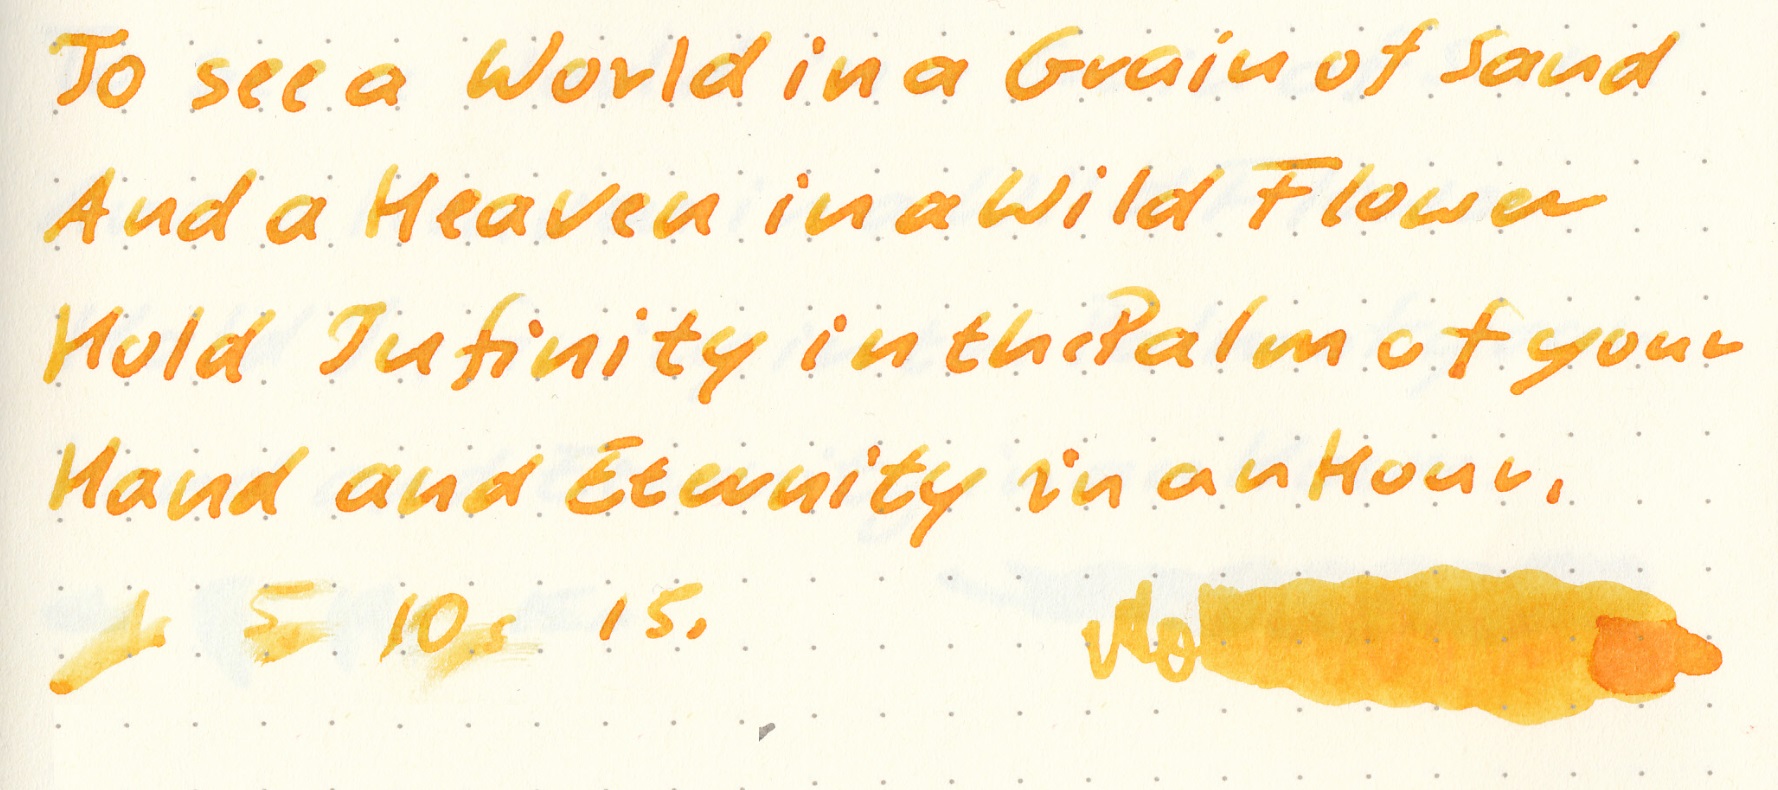 To see a World in a Grain of Sand
And a Heaven in a Wild Flower
Hold Infinity in the Palm of your
Hand and Eternity in an Hour.
1s 5 10s 15s